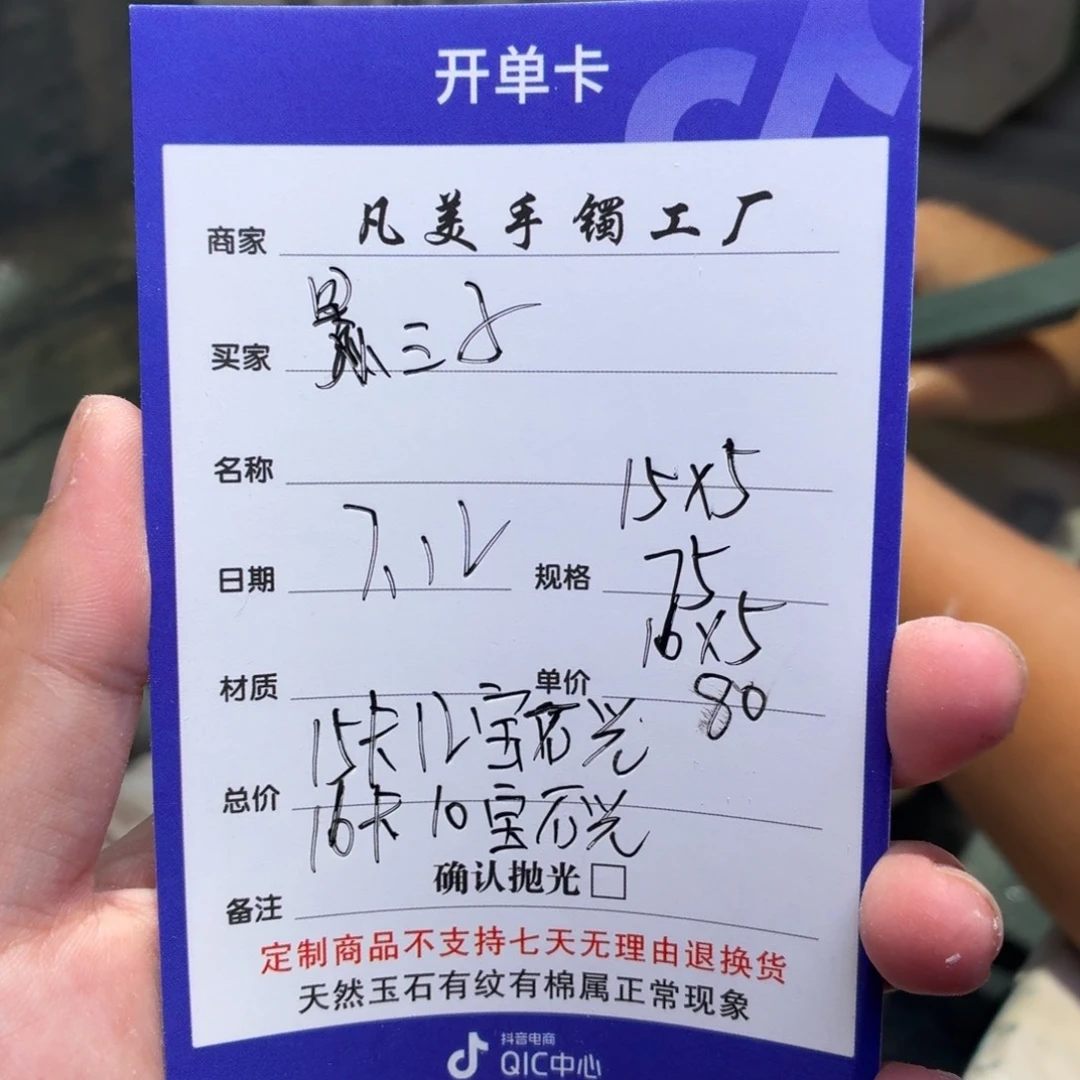 开单卡
商家 凡美手镯工厂
买家
名称
15×5
日期 7.12 规格 75
16×5
材质 单价 80
15卡12宝石光
总价
16卡10宝石光
确认抛光□
备注
定制商品不支持七天无理由退换货
天然玉石有纹有棉属正常现象
抖音电商
QIC中心